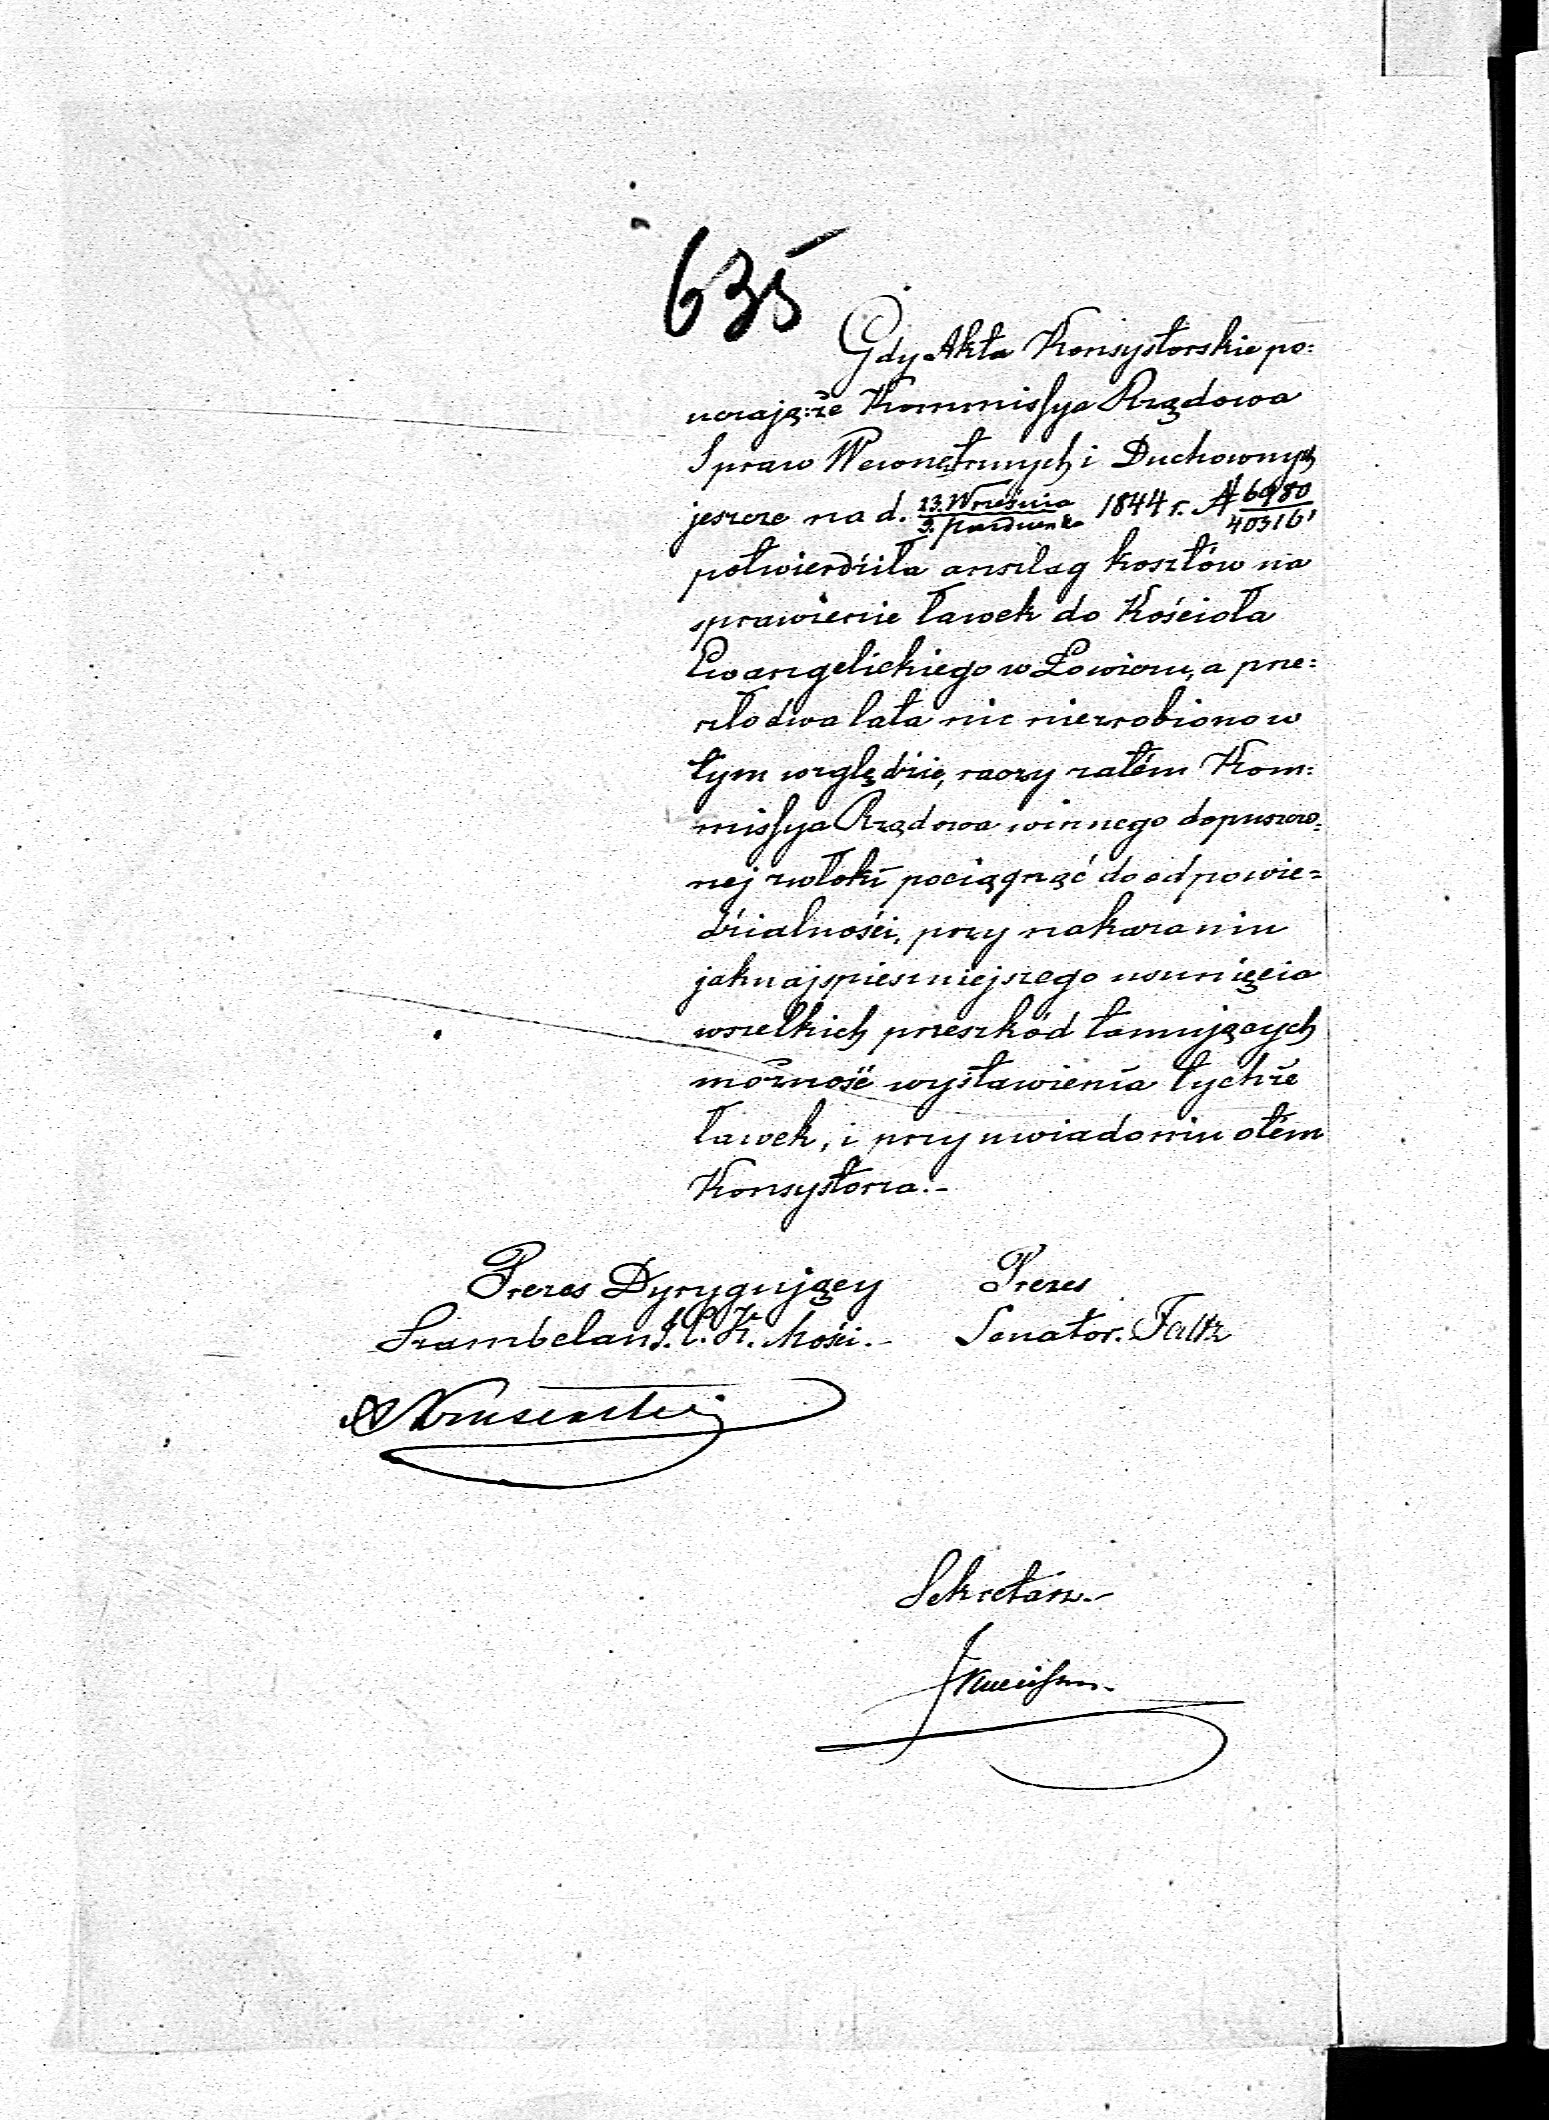 635
Gdy Akta Konsystorskie po:
uczają: że Kommissya Rządowa
Spraw Wewnętrznych i Duchownych
jeszcze na d. 23. Września / 5. Październ: 1844 r. № 6980/40316
potwierdziła anszlag kosztów na
sprawienie ławek do Kościoła
Ewangelickiego w Łowiczu, a prze:
szło dwa lata nic niezrobiono w
tym względzie, raczy zatém Kom:
missya Rządowa winnego dopuszczo:
nej zwłoki pociągnąć do odpowie=
dzialności, przy nakazaniu
jaknajspieszniejszego usunięcia
wszelkich przeszkód tamujących
możność wystawienia tychże
ławek, i przy uwiadomiu otém
Konsystorza.-
Prezes Dyrygujący Prezes
Szambelan J. C. K. Mości.- Senator. Faltz
Sekretarz.-